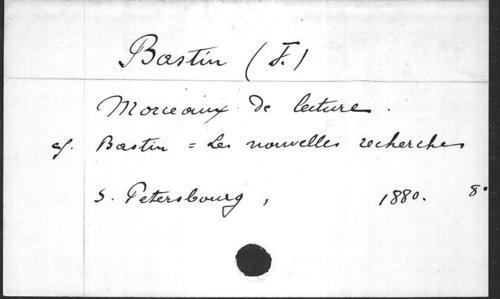 Bastin (F.)
Morceaux de lecture.
cf. Bastin = Les nouvelles recherches
S. Petersbourg, 1880. 8°